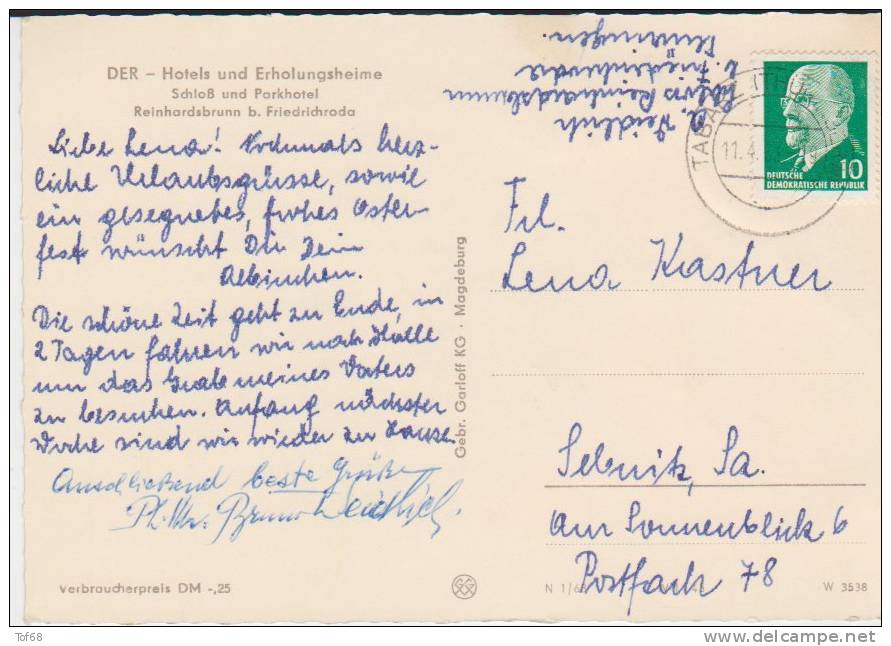 DER – Hotels und Erholungsheime
Schloß und Parkhotel
Reinhardsbrunn b. Friedrichroda
Liebe Lena! Nochmals herz-
liche Urlaubsgrüsse, sowie
ein gesegnetes, frohes Oster-
fest wünscht Dir Dein
Albinchen.
Die schöne Zeit geht zu Ende, in
2 Tagen fahren wir nach Halle
um das Grab meines Vaters
zu besuchen. Anfang nächster
Woche sind wir wieder zu Hause.
Anschließend beste Grüße
Bruno Weidlich.
Verbraucherpreis DM -,25
Gebr. Garloff KG · Magdeburg
Weidlich
Schloss Reinhardsbrunn
b. Friedrichroda
Thüringen.
TABARZ (THÜR
11.4.
10
DEUTSCHE
DEMOKRATISCHE REPUBLIK
Frl.
Lena Kastner
Sebnitz, Sa.
Am Sonnenblick 6
Postfach 78
N 1/6
W 3538
Tof68
delcampe.net